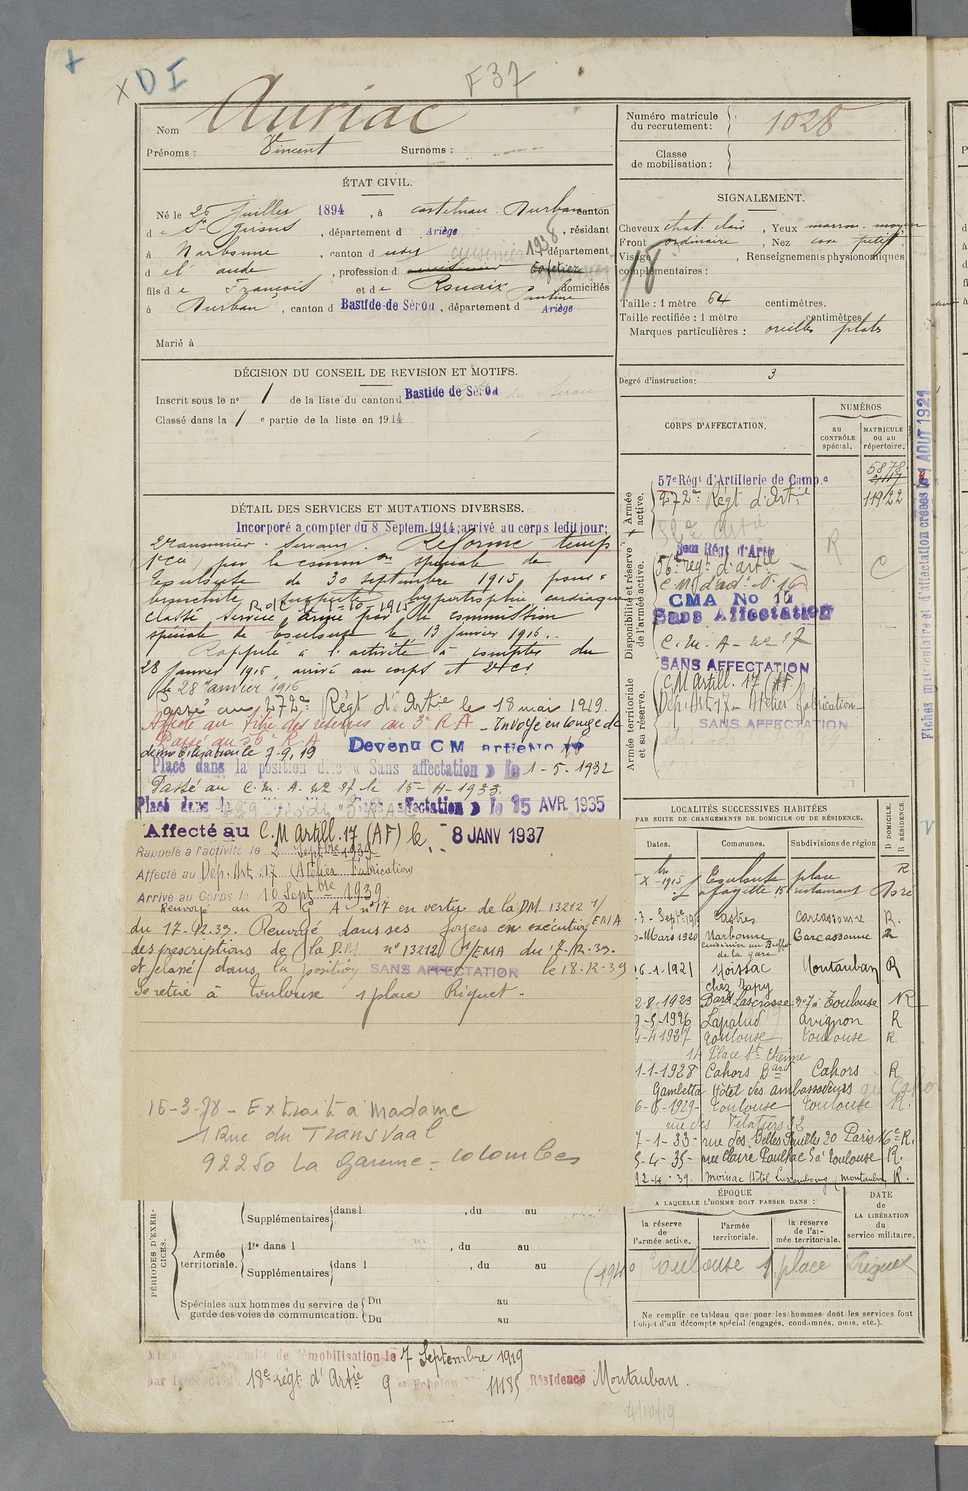 D I
F 37
Nom Auriac
Prénoms : Vincent Surnoms :
ÉTAT CIVIL.
Né le 25 Juillet 1894, à Castelnau-Durban canton
de St Girons, département d Ariège, résidant
à Narbonne, canton d udit 1938 département
d e l'aude, profession d Cafetier
fils d e François et de Rouaix, domiciliés
à Durban, canton d Bastide-de-Sérou, département d Ariège
Marié à
DÉCISION DU CONSEIL DE REVISION ET MOTIFS.
Inscrit sous le n° 1 de la liste du canton d Bastide de Sérou
Classé dans la 1e partie de la liste en 1914
DÉTAIL DES SERVICES ET MUTATIONS DIVERSES.
Incorporé a compter du 8 Septem. 1914; arrivé au corps ledit jour;
2e canonnier servant. Réformé temp
par la commion spéciale de
Toulouse de 30 septembre 1915 pour :
bronchite suspecte hypertrophie cardiaque
Classé service armé par la commission
spéciale de Toulouse le 13 janvier 1916.
Rappelé à l'activité à compter du
28 Janvier 1916, arrivé au corps et 2e Cr
le 28 janvier 1916
Passé au 272e Régt d'Artie le 18 mai 1919.
Affecté au titre des réserves au 3e R A - Envoyé en congé de
Passé au 56e R A
démobilisation le 7.9.19 Devenu C M artierie 17
Placé dans la position dite « Sans affectation » le 1-5-1932
Passé au C. M. A. n° 17 le 15-4-1933.
Placé dans la position « Sans affectation » le 15 AVR. 1935
Affecté au C. M Artill. 17 (AF) le - 8 JANV 1937
Rappelé à l'activité le 2 Septbre 1939
Affecté au Dep. Art. 17 (Atelier Fabrication)
Arrivé au Corps le 10 Septbre 1939
Renvoyé au D G A n°17 en vertu de la DM. 13212 1/
EMA
du 17.12.39. Renvoyé dans ses foyers en exécution
des prescriptions de la D.M. n° 13212 1/EMA du 17.12.39.
et classé dans la position SANS AFFECTATION le 18.12.39
Se retire à Toulouse 1 place Riquet.
15-3-78 - Extrait à Madame
1 Rue du Transvaal
92250 La Garenne-Colombes
PÉRIODES D'EXERCICES.
Supplémentaires dans l , du au
Armée territoriale.
1re dans l , du au
Supplémentaires dans l , du au
Spéciales aux hommes du service de
garde des voies de communication.
Du au
Du au
démobilisation le 7 Septembre 1919
18e régt d'Artie 9 Echelon 11185 Résidence Montauban.
4/10/19
Numéro matricule
du recrutement : 1028
Classe
de mobilisation :
SIGNALEMENT.
Cheveux chat. clair, Yeux marron moyen
Front ordinaire, Nez
Visage , Renseignements physionomiques
complémentaires :
Taille : 1 mètre 64 centimètres.
Taille rectifiée : 1 mètre centimètres
Marques particulières : oreilles plates
Degré d'instruction : 3
CORPS D'AFFECTATION.
NUMÉROS
au
CONTRÔLE
spécial.
MATRICULE
ou au
répertoire.
Armée
active.
Disponibilité et réserve
de l'armée active.
Armée territoriale
et sa réserve.
57e Régt d'Artillerie de Camp.e 5878
272e Régt d'Artie 11922
3em Régt d'Artie
56e régt d'artie
C. M. d'art. N° 16
CMA No 16
Sans Affectation
C. M. A - n° 17
SANS AFFECTATION
CM Artill. 17 (AF)
Dép. Art. 17 - Atelier fabrication
SANS AFFECTATION
R
C
Fiches matriculaire et d'affectation créées le 1 AOUT 1921
LOCALITÉS SUCCESSIVES HABITÉES
PAR SUITE DE CHANGEMENTS DE DOMICILE OU DE RÉSIDENCE.
Dates. Communes. Subdivisions de région D DOMICILE. R RÉSIDENCE.
Toulouse place R
Lafayette 15 restaurant
Castres Carcassonne R.
Mars 1920 Narbonne Carcassonne R
cuisinier au Buffet
de la gare
6.1.1921 Moissac Montauban R
chez Tapy
2-8-1923 Bard Lascrosse Toulouse R
9-5-1926 Lapalud Avignon R
4-4 1927 Toulouse Toulouse R
14 Place St Etienne
1-1-1928 Cahors Bard Cahors R
Gambetta Hôtel des ambassadeurs
1929 - Toulouse Toulouse R.
7-1-33- rue des Belles Feuilles 20 Paris 16e R.
5-4-35- rue Claire Pauilhac 5 à Toulouse R.
12-4-39. Moissac Hôtel Luxembourg Montauban R.
ÉPOQUE
A LAQUELLE L'HOMME DOIT PASSER DANS :
la réserve
de
l'armée active.
l'armée
territoriale.
la réserve
de l'ar-
mée territoriale.
DATE
de
LA LIBÉRATION
du
service militaire.
1940 Toulouse 1, place Riquet
Ne remplir ce tableau que pour les hommes dont les services font
l'objet d'un décompte spécial (engagés, condamnés, omis, etc.).